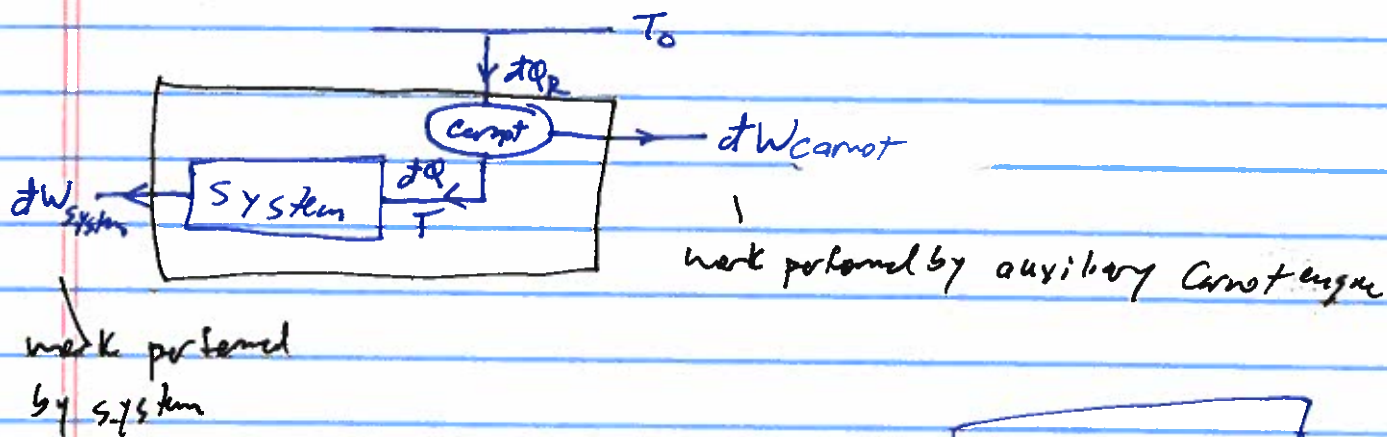 T₀
đQ_R
Carnot
đW_Carnot
đQ
System
T
đW_system
work performed by auxiliary Carnot engine
work performed
by system